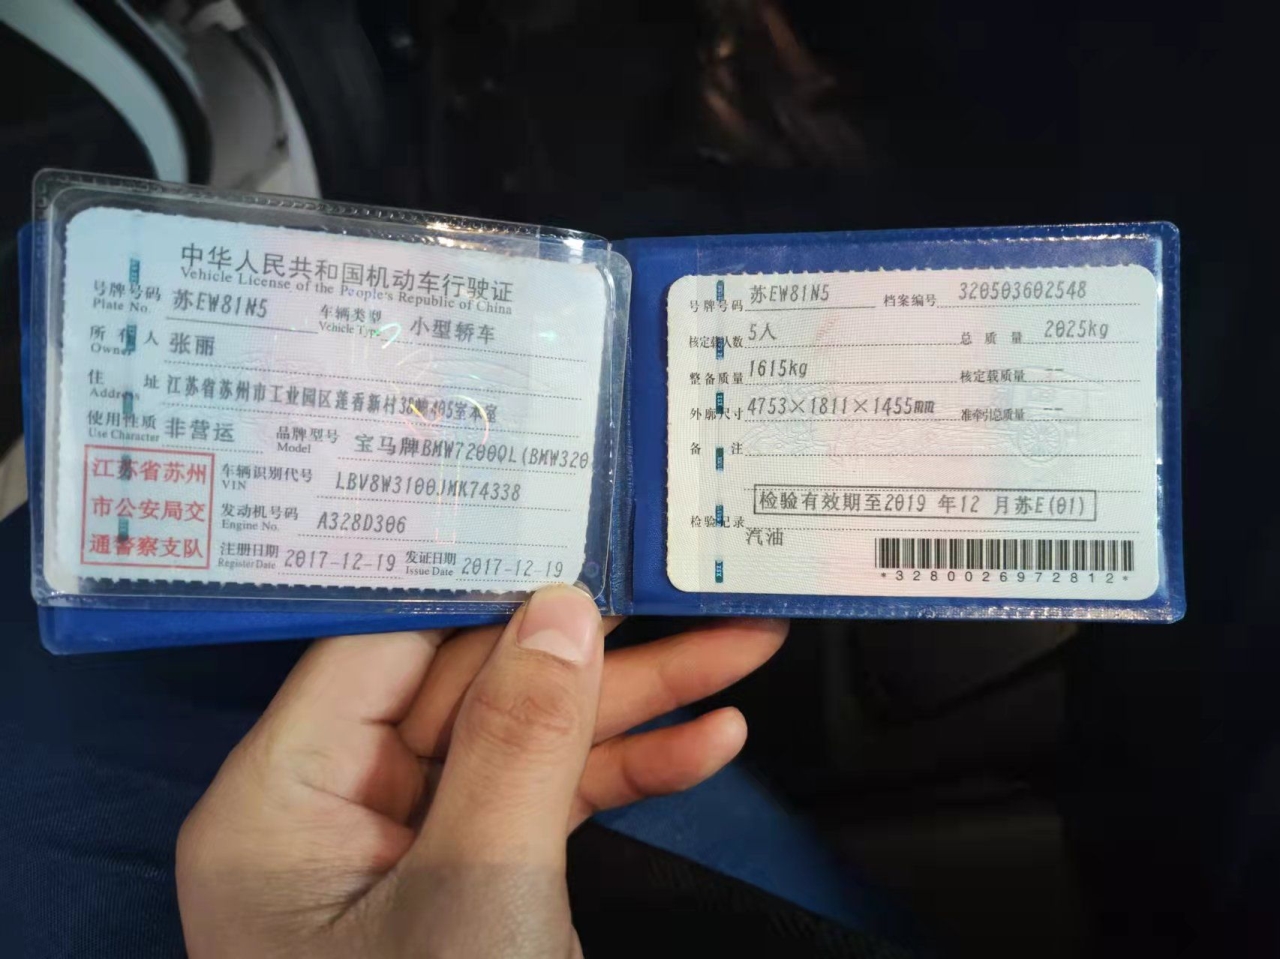 中华人民共和国机动车行驶证
Vehicle License of the People's Republic of China
号牌号码 苏EW81N5 车辆类型 小型轿车
Plate No. Vehicle Type
所有人 张丽
Owner
住址 江苏省苏州市工业园区莲香新村
Address
使用性质 非营运 品牌型号 宝马牌BMW7200QL(BMW320
Use Character Model
江苏省苏州
市公安局交
通警察支队
车辆识别代号 LBV8W3100JMK74338
VIN
发动机号码 A328D306
Engine No.
注册日期 2017-12-19 发证日期 2017-12-19
Register Date Issue Date
号牌号码 苏EW81N5 档案编号 320503602548
核定载人数 5人 总质量 2025kg
整备质量 1615kg 核定载质量 --
外廓尺寸 4753×1811×1455mm 准牵引总质量 --
备注
检验有效期至2019 年12 月苏E(01)
检验记录
汽油
*3280026972812*